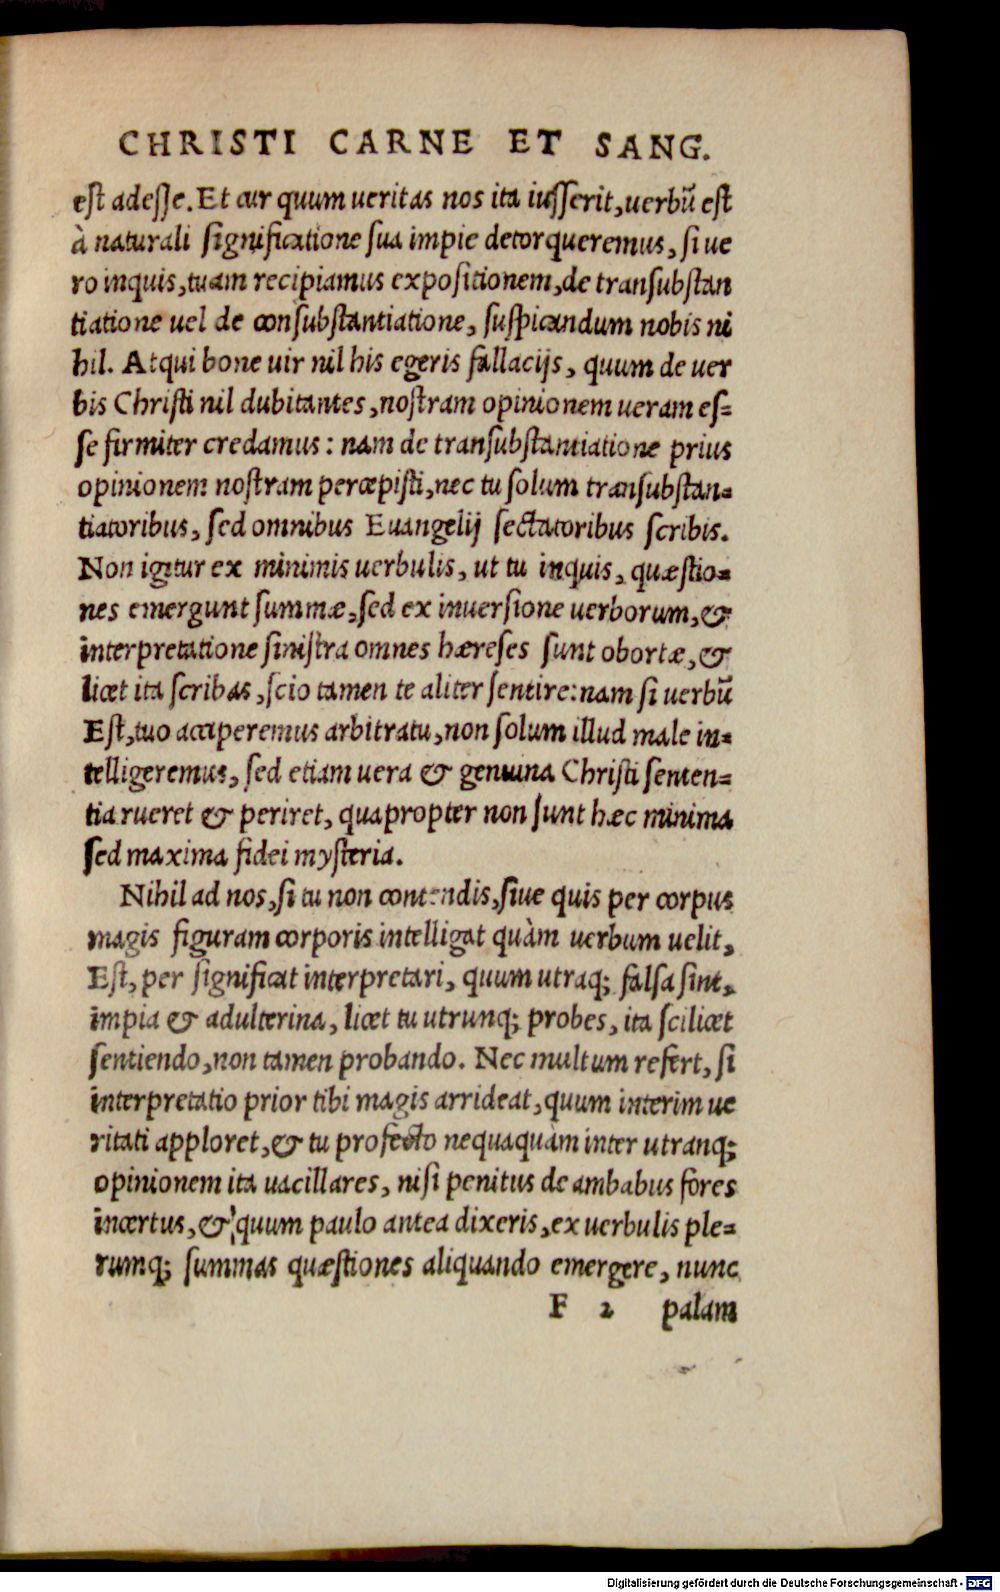 CHRISTI CARNE ET SANG.
est adesse. Et cur quum ueritas nos ita iusserit, uerbū est
à naturali significatione sua impie detorqueremus, si ue
ro inquis, tuam recipiamus expositionem, de transubstan
tiatione uel de consubstantiatione, suspicandum nobis ni
hil. Atqui bone uir nil his egeris fallacijs, quum de uer
bis Christi nil dubitantes, nostram opinionem ueram es=
se firmiter credamus: nam de transubstantiatione prius
opinionem nostram percæpisti, nec tu solum transubstan=
tiatoribus, sed omnibus Euangelij sectatoribus scribis.
Non igitur ex minimis uerbulis, ut tu inquis, quæstio=
nes emergunt summæ, sed ex inuersione uerborum, &
interpretatione sinistra omnes hæreses sunt obortæ, &
licet ita scribas, scio tamen te aliter sentire: nam si uerbū
Est, tuo acciperemus arbitratu, non solum illud male in=
telligeremus, sed etiam uera & genuina Christi senten=
tia rueret & periret, quapropter non sunt hæc minima
sed maxima fidei mysteria.
Nihil ad nos, si tu non contendis, siue quis per corpus
magis figuram corporis intelligat quàm uerbum uelit,
Est, per significat interpretari, quum utraq; falsa sint,
impia & adulterina, licet tu utrunq; probes, ita scilicet
sentiendo, non tamen probando. Nec multum refert, si
interpretatio prior tibi magis arrideat, quum interim ue
ritati apploret, & tu profecto nequaquàm inter utranq;
opinionem ita uacillares, nisi penitus de ambabus fores
incertus, & quum paulo antea dixeris, ex uerbulis ple=
rumq; summas quæstiones aliquando emergere, nunc
F 2 palam
Digitalisierung gefördert durch die Deutsche Forschungsgemeinschaft - DFG